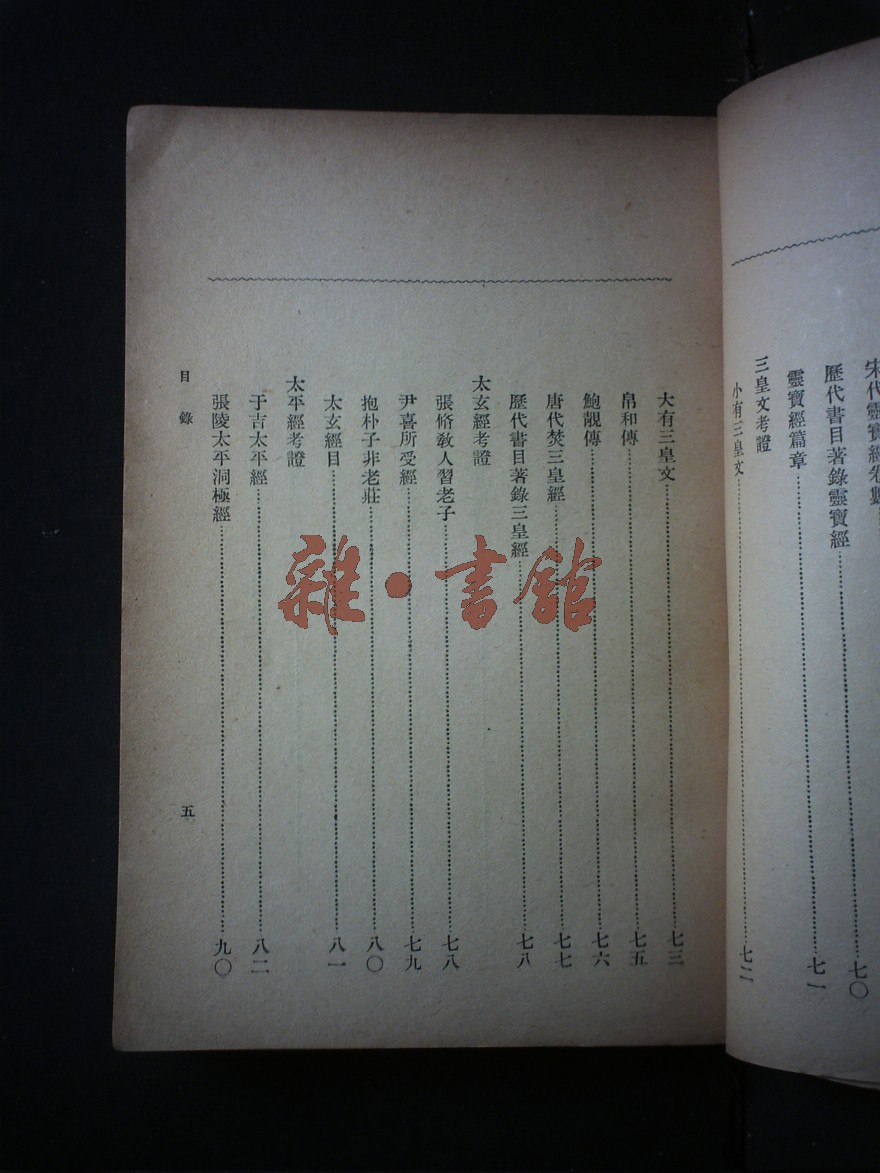 宋代靈寶經卷數
歷代書目著錄靈寶經……七〇
靈寶經篇章……七一
三皇文考證
小有三皇文……七二
大有三皇文……七三
帛和傳……七五
鮑靚傳……七六
唐代焚三皇經……七七
歷代書目著錄三皇經……七八
太玄經考證
張脩敎人習老子……七八
尹喜所受經……七九
抱朴子非老莊……八〇
太玄經目……八一
太平經考證
于吉太平經……八二
張陵太平洞極經……九〇
目錄
五
雜·書館